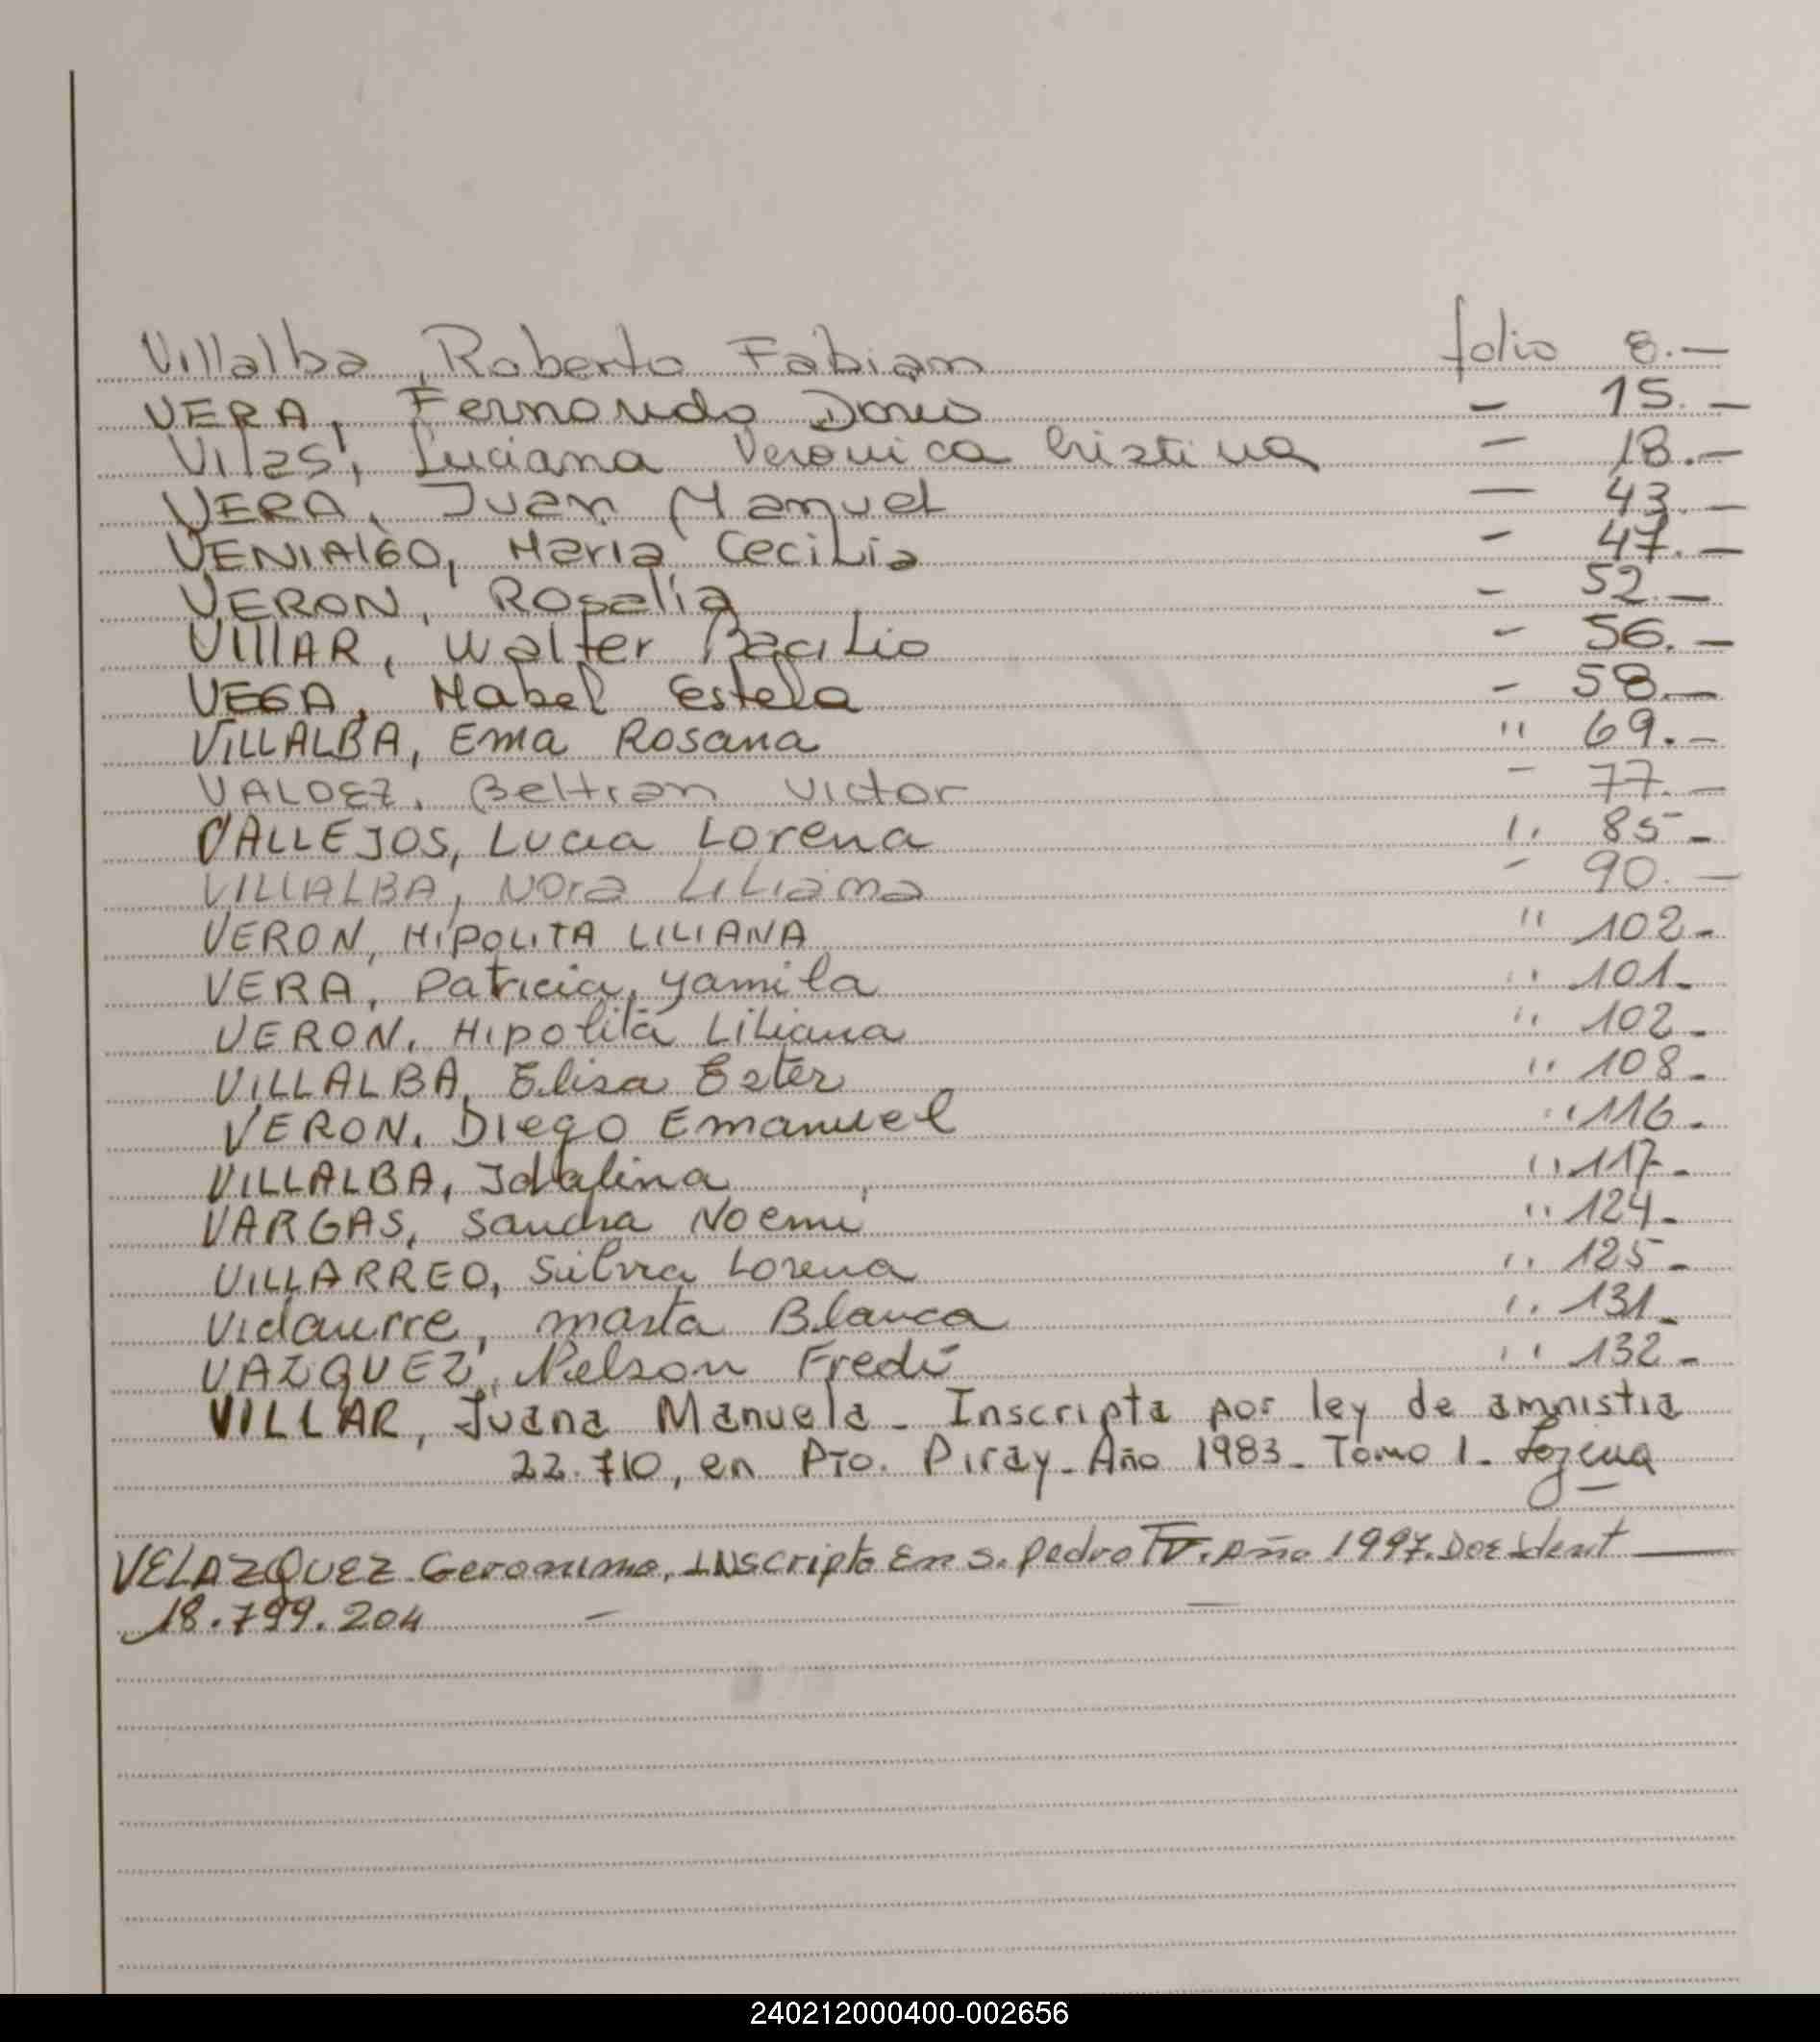 Villalba, Roberto Fabian folio 8.—
VERA, Fernando Dario — 15.—
Vilas, Luciana Veronica Cristina — 18.—
VERA, Juan Manuel — 43.—
VENIALGO, Maria Cecilia — 47.—
VERON, Rosalia — 52.—
VIllAR, Walter Bacilio — 56.—
VEGA, Mabel Estela — 58.—
VILLALBA, Ema Rosana " 69.—
VALDEZ, Beltran Victor — 77.—
VALLEJOS, Lucia Lorena " 85—
VILLALBA, Nora Liliana — 90.—
VERON, HIPOLITA LILIANA " 102—
VERA, Patricia, yamila " 101—
VERON, Hipolita Liliana " 102—
VILLALBA, Elisa Ester " 108—
VERON, Diego Emanuel " 116—
VILLALBA, Idalina " 117—
VARGAS, Sandra Noemi " 124—
VILLARREO, Silvia Lorena " 125—
Vidaurre, marta Blanca " 131—
VAZQUEZ, Nelson Fredi " 132—
VILLAR, Juana Manuela - Inscripta por ley de amnistia
22.710, en Pto. Piray - Año 1983 - Tomo 1 -
VELAZQUEZ Geronimo, INscripto En S. pedro IV. Año 1997. Doc Ident —
18.799.204 — —
240212000400-002656